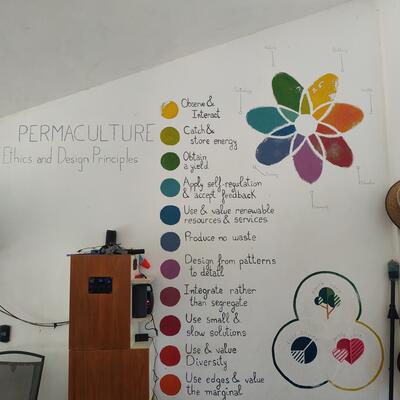 PERMACULTURE
Ethics and Design Principles
Observe &
Interact
Catch &
store energy
Obtain
a yield
Apply self-regulation
& accept feedback
Use & value renewable
resources & services
Produce no waste
Design from patterns
to detail
Integrate rather
than segregate
Use small &
slow solutions
Use & value
Diversity
Use edges & value
the marginal